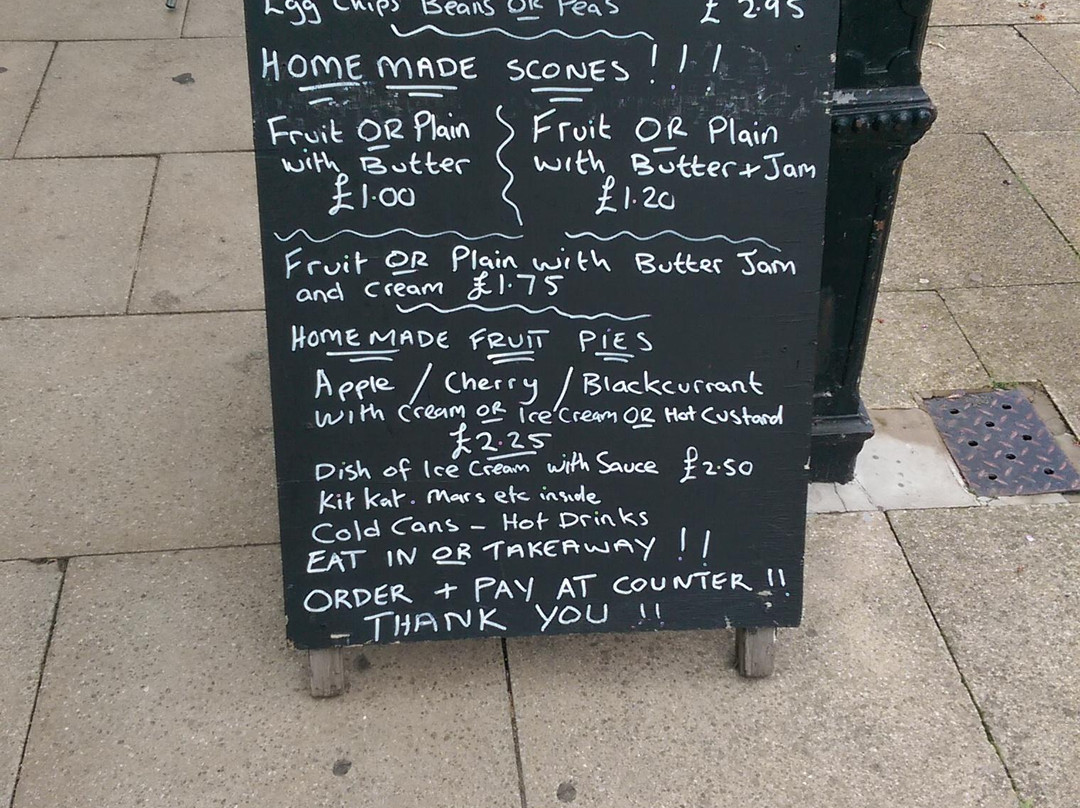 Egg Chips Beans OR Peas £2.95
HOMEMADE SCONES!!!
Fruit OR Plain
with Butter
£1.00
Fruit OR Plain
with Butter + Jam
£1.20
Fruit OR Plain with Butter Jam
and cream £1.75
HOMEMADE FRUIT PIES
Apple / Cherry / Blackcurrant
with cream OR Ice Cream OR Hot Custard
£2.25
Dish of Ice Cream with Sauce £2.50
Kit Kat. Mars etc inside
Cold Cans - Hot Drinks
EAT IN OR TAKEAWAY!!
ORDER + PAY AT COUNTER!!
THANK YOU!!